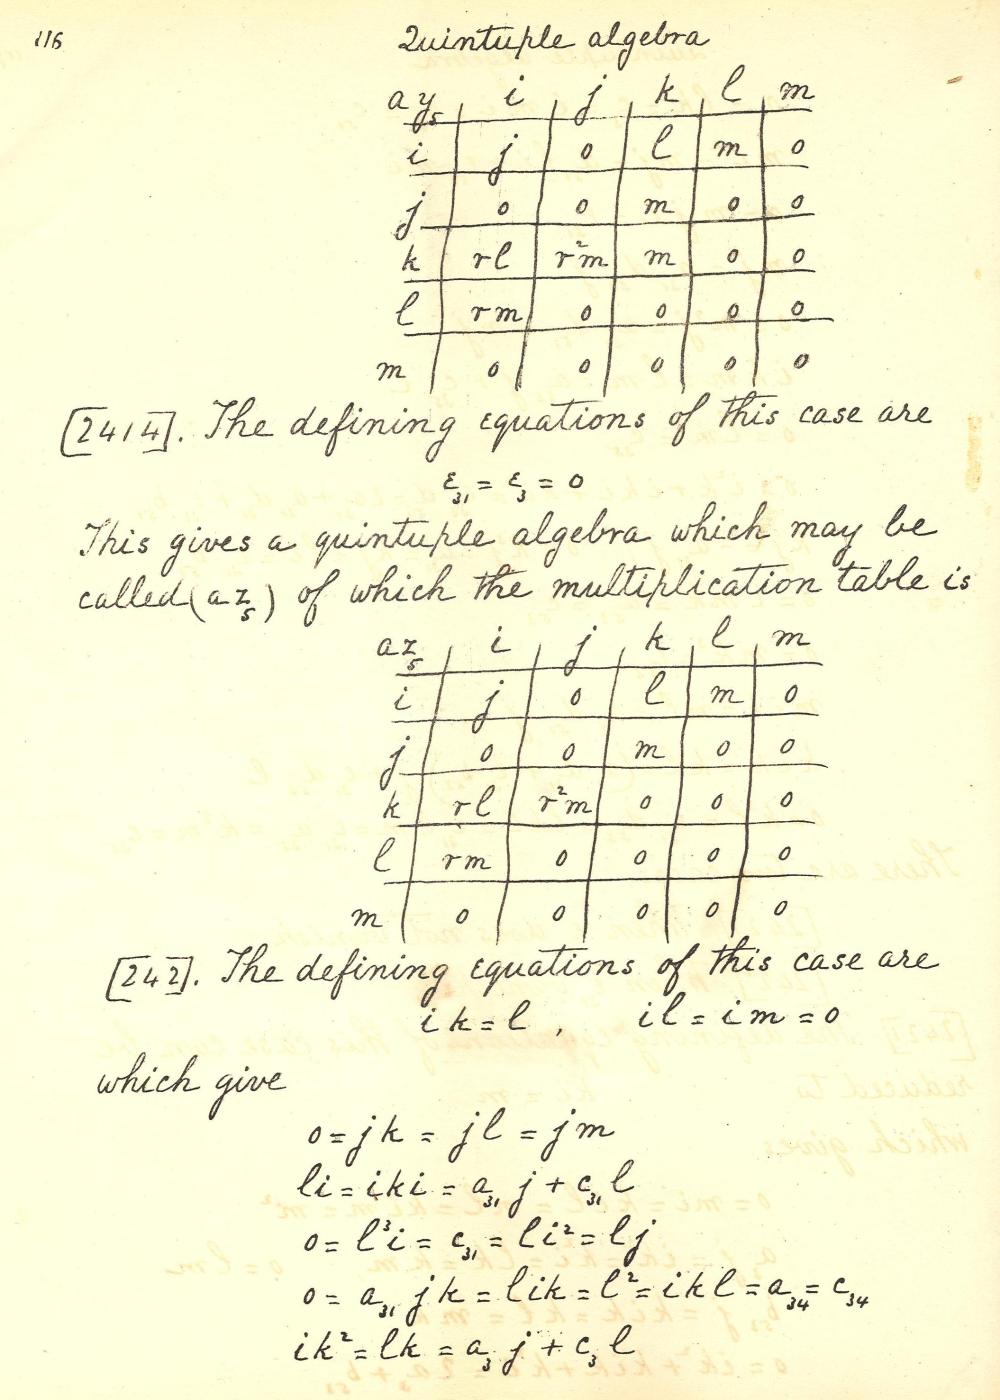 116
Quintuple algebra
ay₅ i j k l m
i j 0 l m 0
j 0 0 m 0 0
k rl r²m m 0 0
l rm 0 0 0 0
m 0 0 0 0 0
[2414]. The defining equations of this case are
ε₃₁ = ε₃ = 0
This gives a quintuple algebra which may be
called (az₅) of which the multiplication table is
az₅ i j k l m
i j 0 l m 0
j 0 0 m 0 0
k rl r²m 0 0 0
l rm 0 0 0 0
m 0 0 0 0 0
[242]. The defining equations of this case are
ik = l , il = im = 0
which give
0 = jk = jl = jm
li = iki = a₃₁ j + c₃₁ l
0 = l³i = c₃₁ = li² = lj
0 = a₃₁ jk = lik = l² = ikl = a₃₄ = c₃₄
ik² = lk = a₃ j + c₃ l